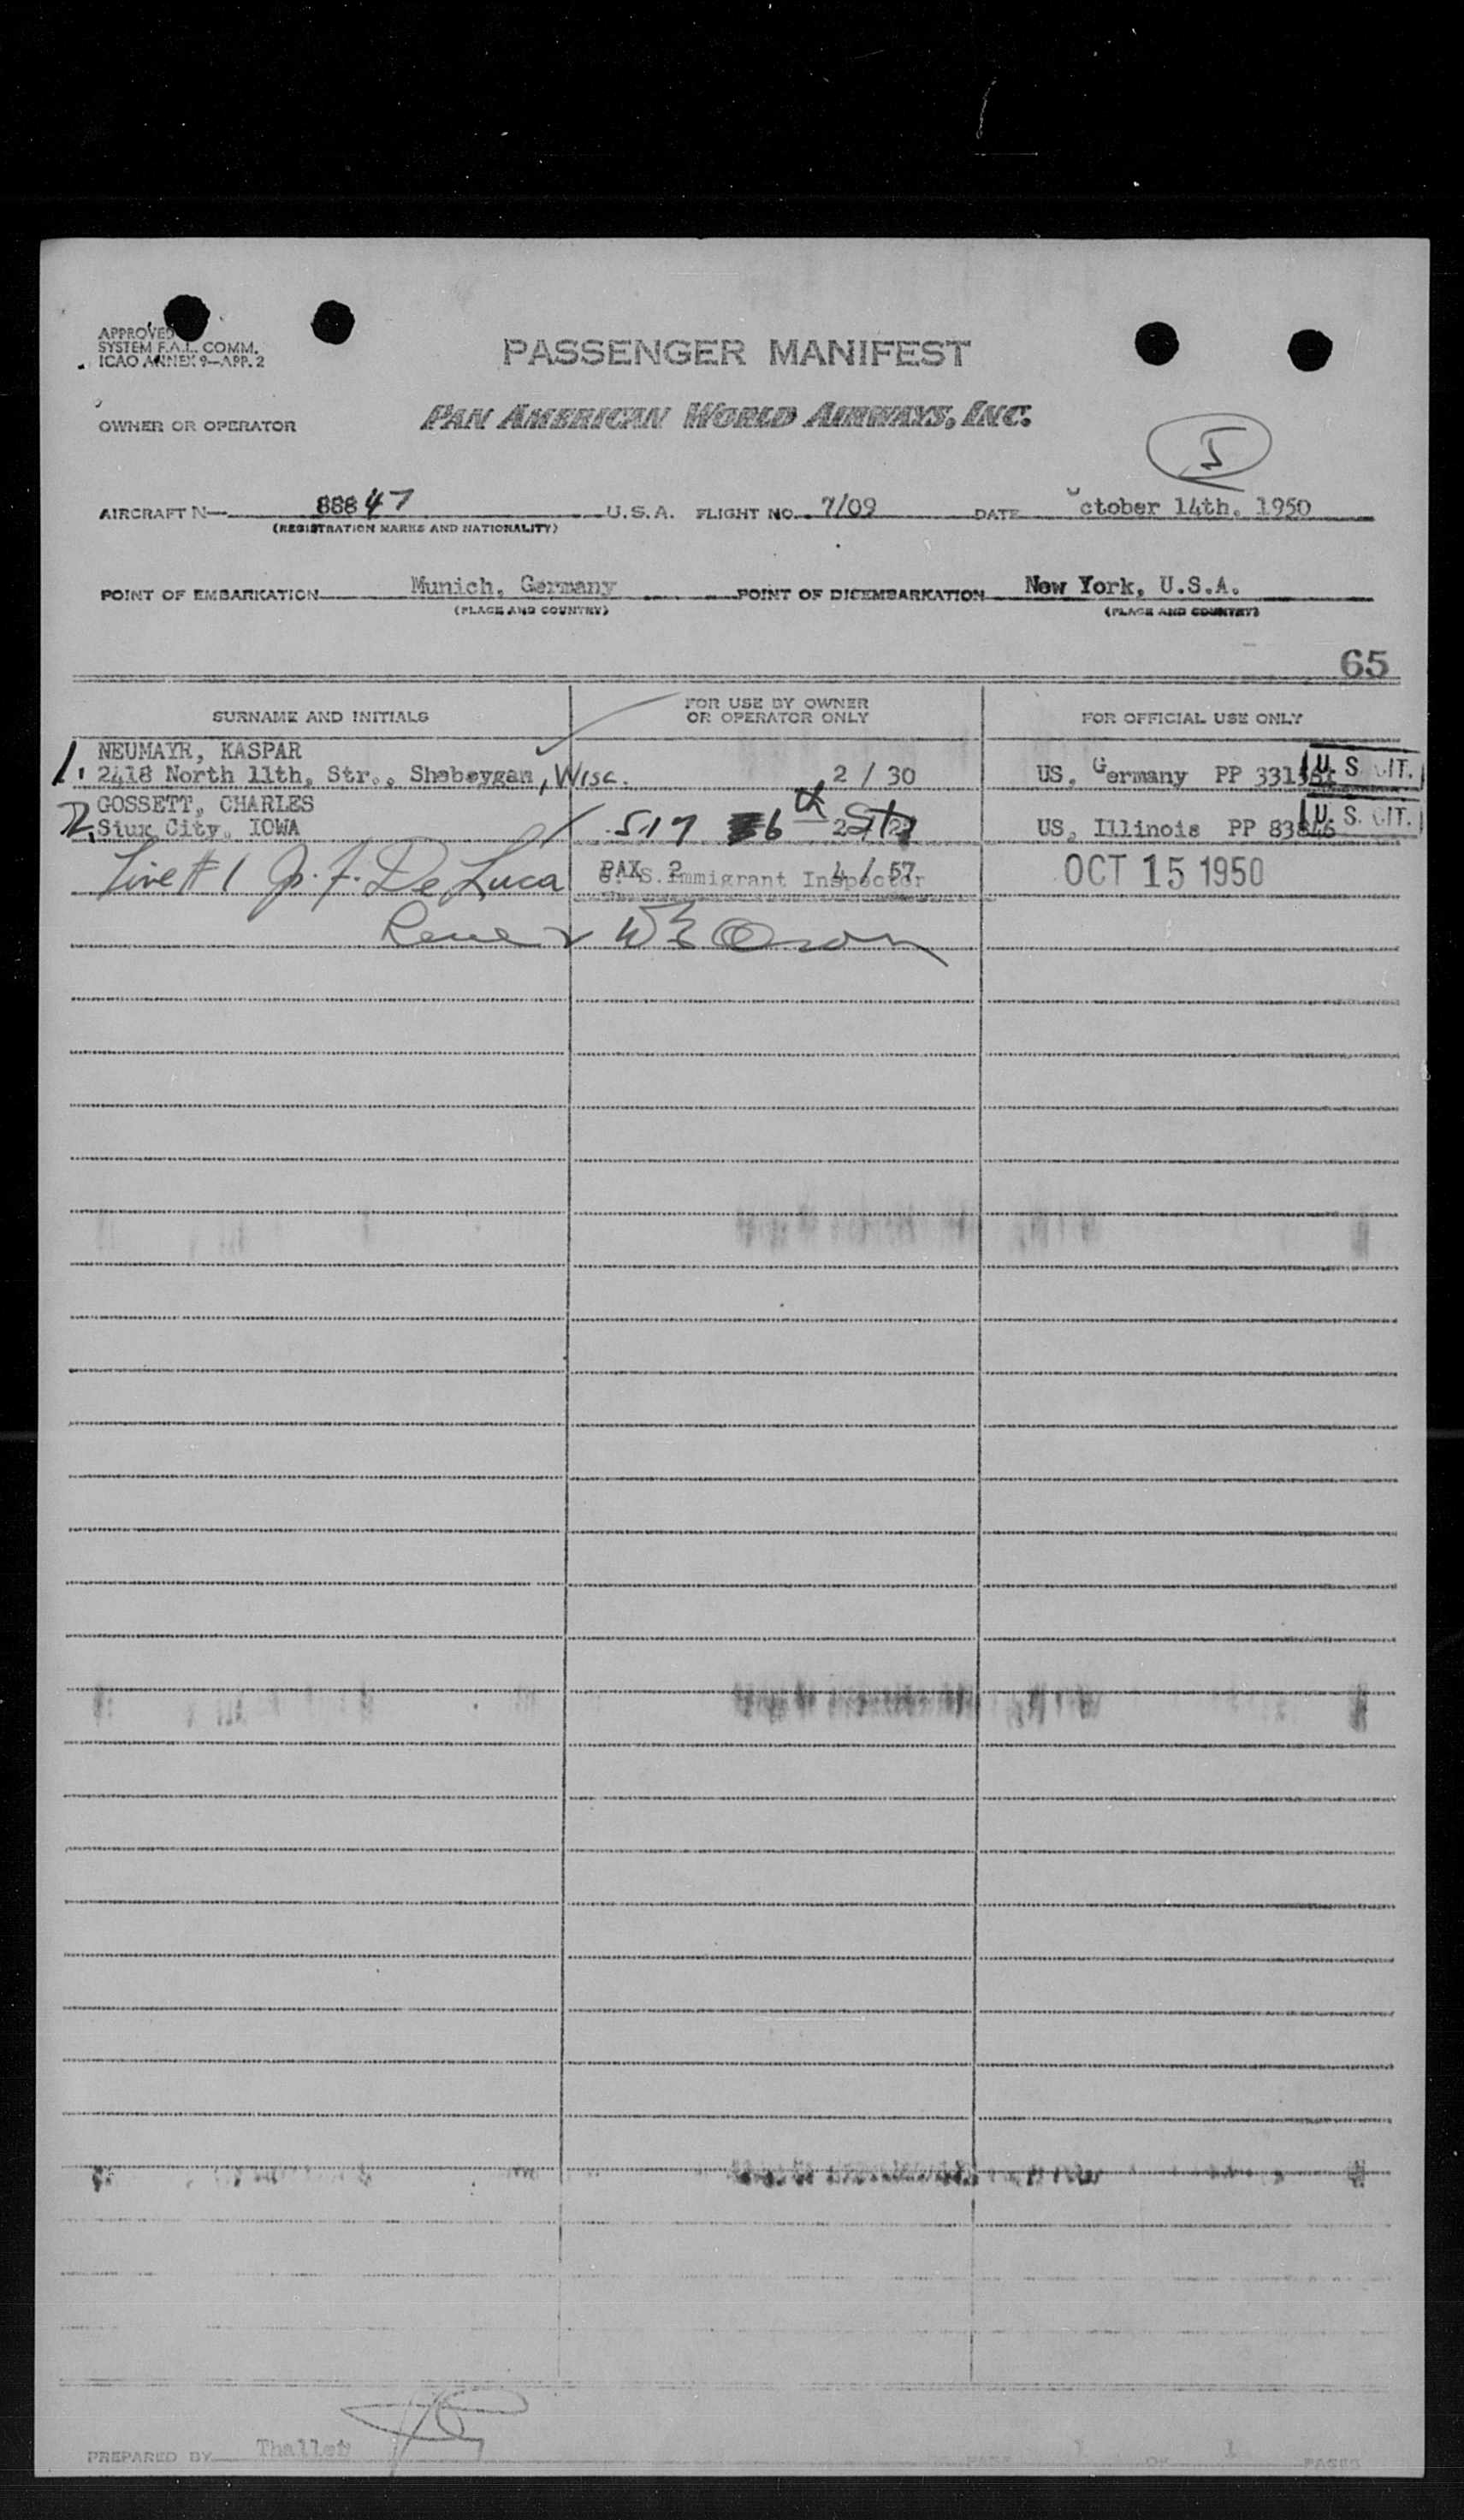 APPROVED
SYSTEM F.A.L. COMM.
ICAO ANNEX 9—APP. 2
PASSENGER MANIFEST
OWNER OR OPERATOR PAN AMERICAN WORLD AIRWAYS, INC.
I
AIRCRAFT N— 88847 U.S.A. FLIGHT NO. 7/09 DATE October 14th, 1950
(REGISTRATION MARKS AND NATIONALITY)
POINT OF EMBARKATION Munich, Germany POINT OF DISEMBARKATION New York, U.S.A.
(PLACE AND COUNTRY) (PLACE AND COUNTRY)
65
SURNAME AND INITIALS FOR USE BY OWNER OR OPERATOR ONLY FOR OFFICIAL USE ONLY
1. NEUMAYR, KASPAR
2418 North 11th, Str., Shebeygan, Wisc. 2 / 30 US, Germany PP U.S. CIT.
2. GOSSETT, CHARLES
Siux City, IOWA 517 6th St US, Illinois PP U.S. CIT.
Line # 1 J. F. De Luca PAX 2 4 / 57 OCT 15 1950
U. S. Immigrant Inspector
PREPARED BY PAGE 1 OF 1 PAGES